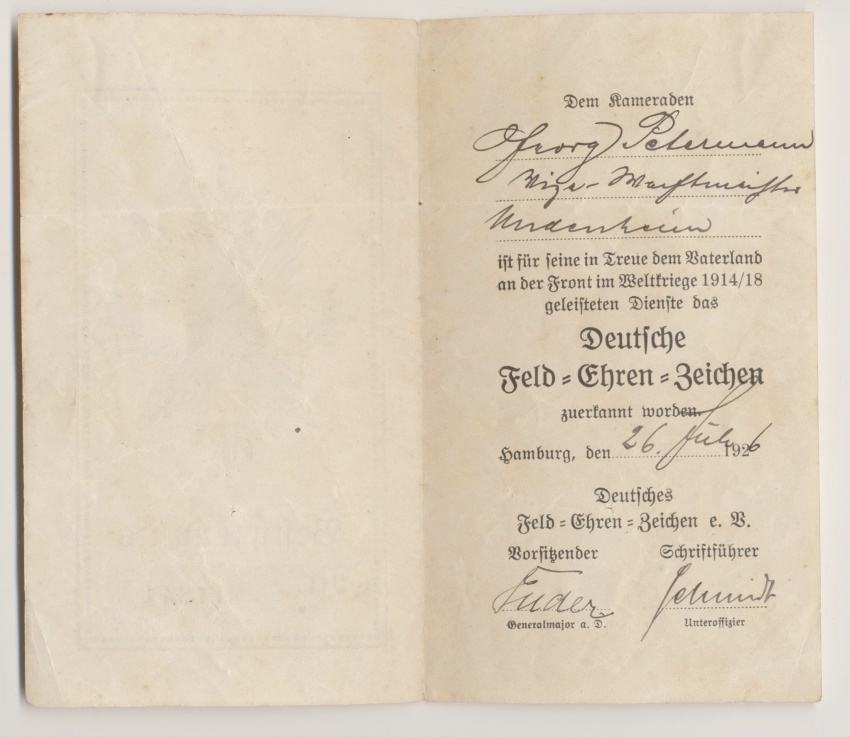 Dem Kameraden
Georg Petermann
Vize-Wachtmeister
Undenheim
ist für seine in Treue dem Vaterland
an der Front im Weltkriege 1914/18
geleisteten Dienste das
Deutsche
Feld-Ehren-Zeichen
zuerkannt worden.
Hamburg, den 26. Juli 1926
Deutsches
Feld-Ehren-Zeichen e. V.
Vorsitzender Schriftführer
Schmidt
Generalmajor a. D. Unteroffizier